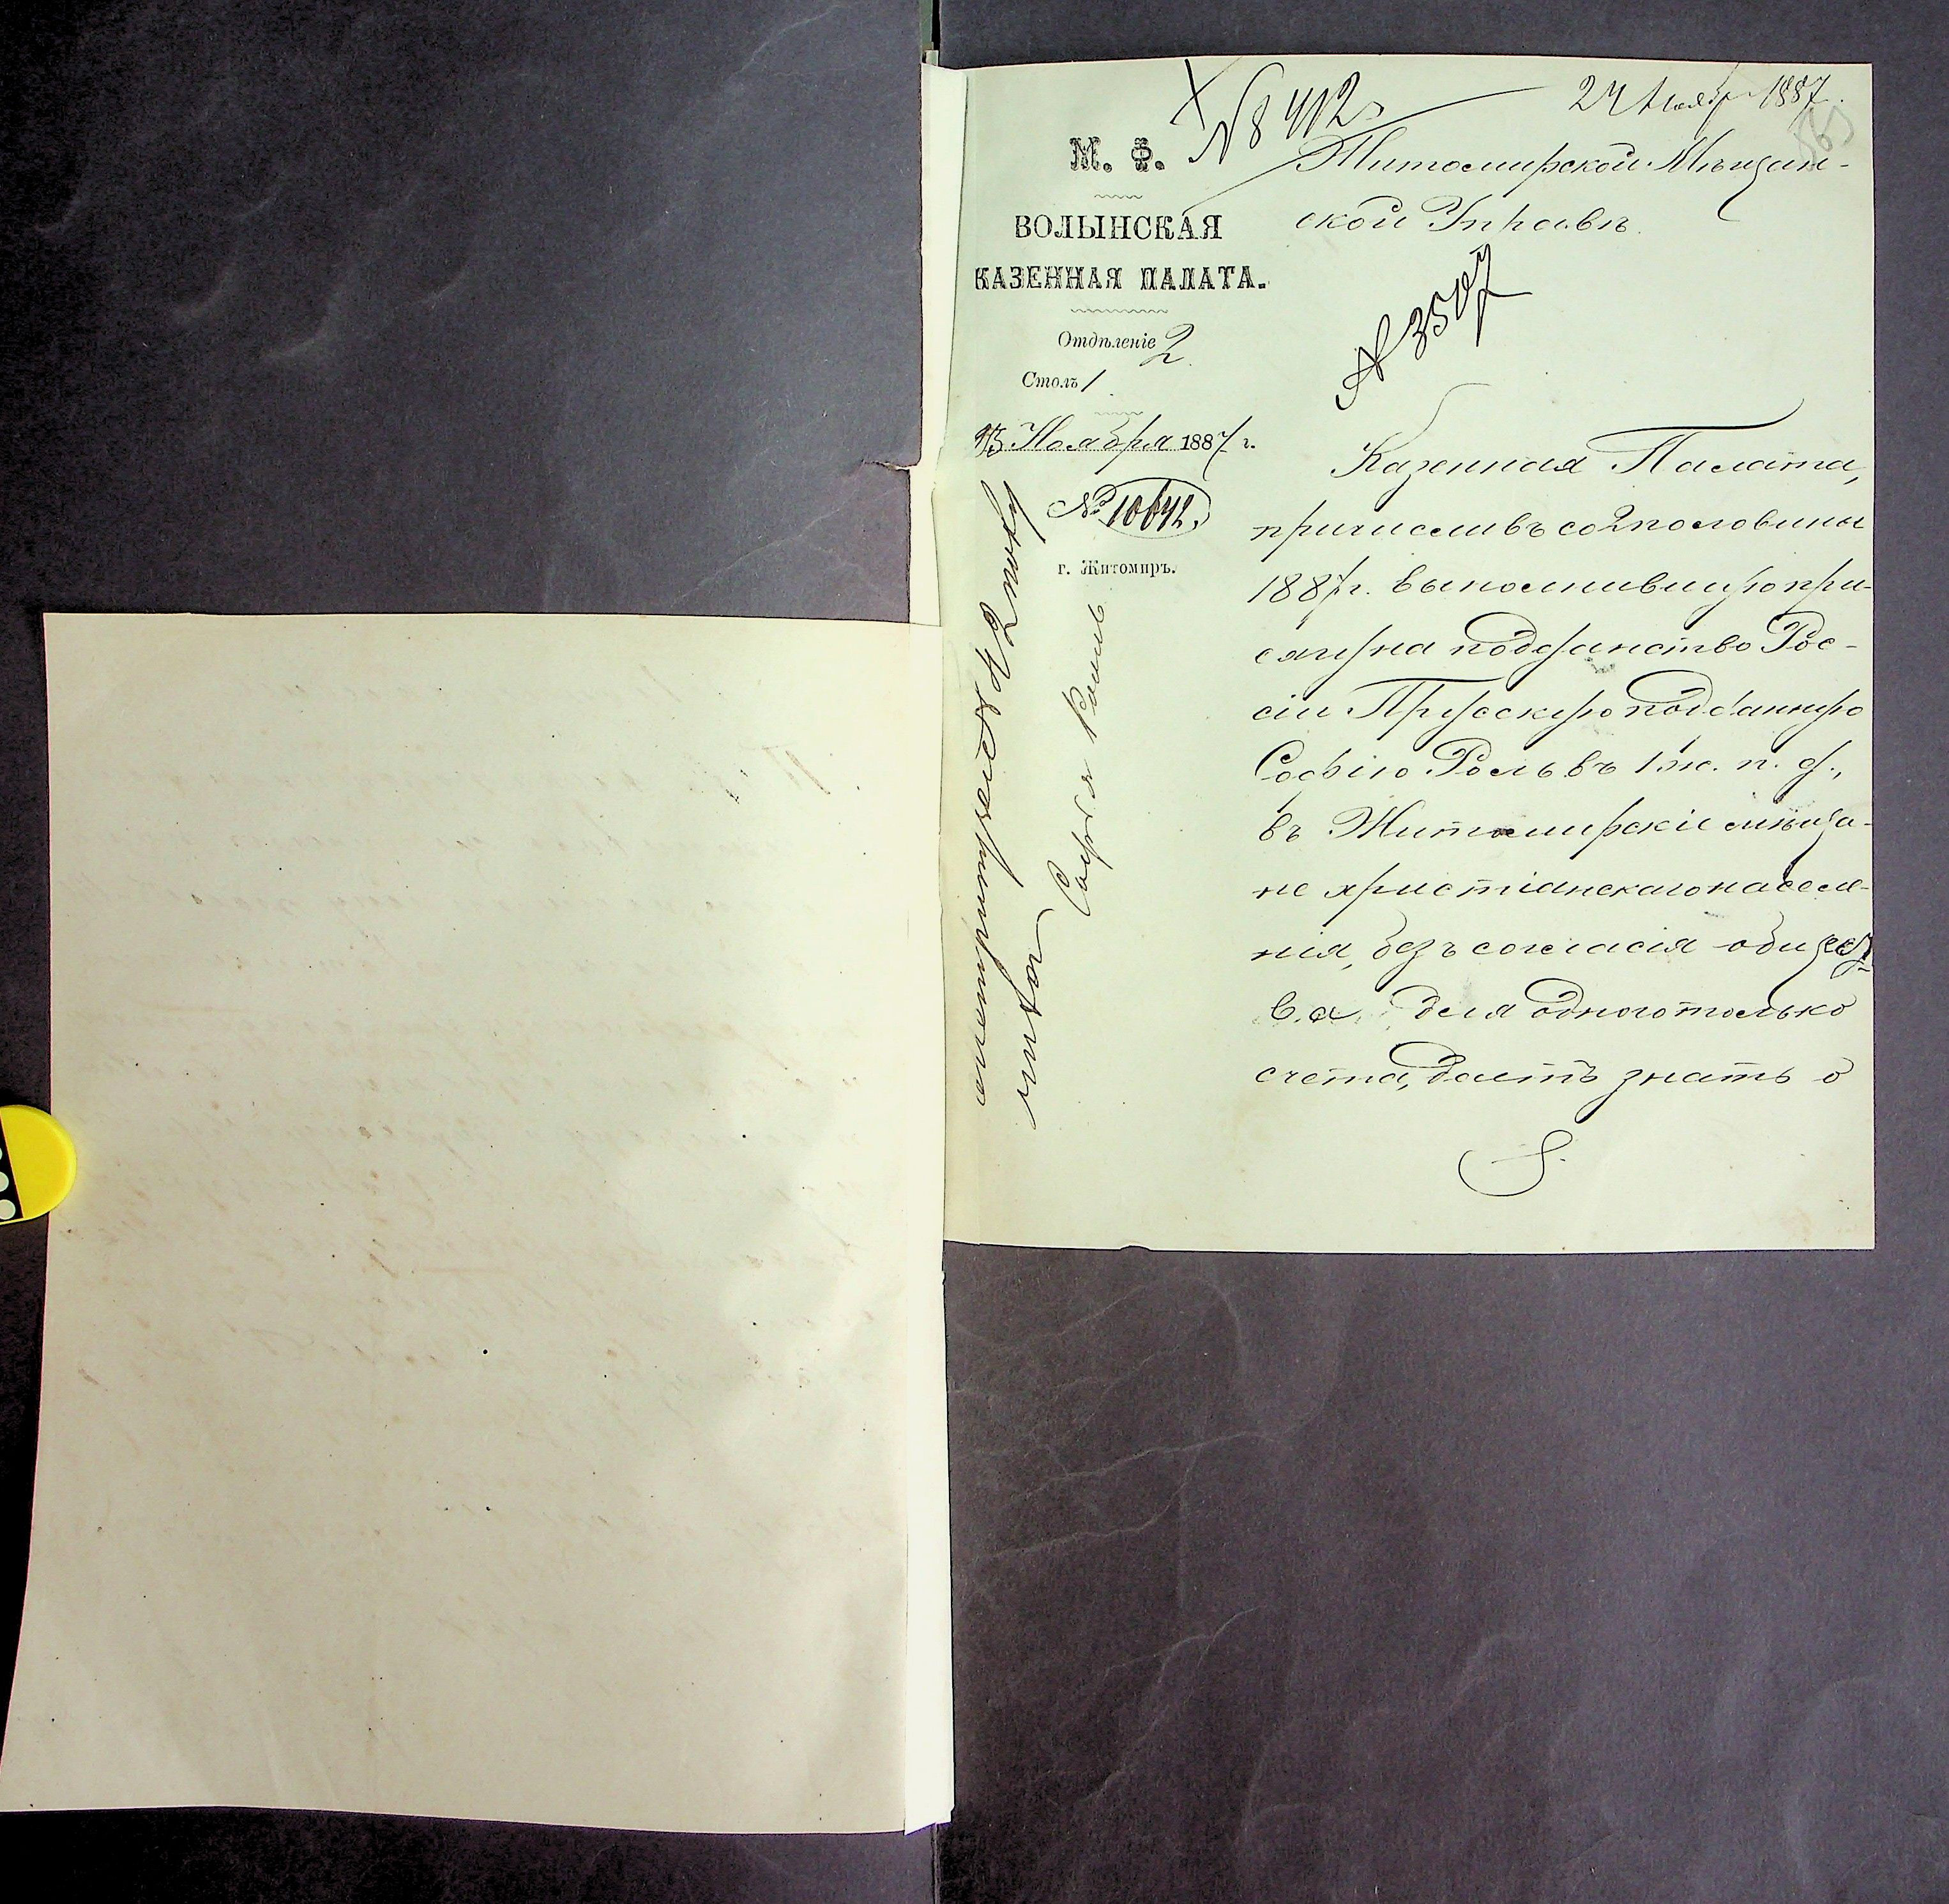 24 Ноября 1887.
М. Ф.
ВОЛЫНСКАЯ
КАЗЕННАЯ ПАЛАТА.
Отдѣленіе 2
Столъ 1
Ноября 1887 г.
№ 10642.
г. Житомиръ.
Житомирской Мѣщан-
ской Управѣ.
№ 3507
Казенная Палата,
причисливъ со 2 половины
1887 г. выполнившую при-
сягу на подданство Рос-
сіи Прусскую подданную
Софію Роль въ 1 ж. п. д.,
въ Житомирскіе мѣща-
не христіанскаго населе-
нія, безъ согласія общест-
ва для одного только
счета, даетъ знать о
Софія Роль